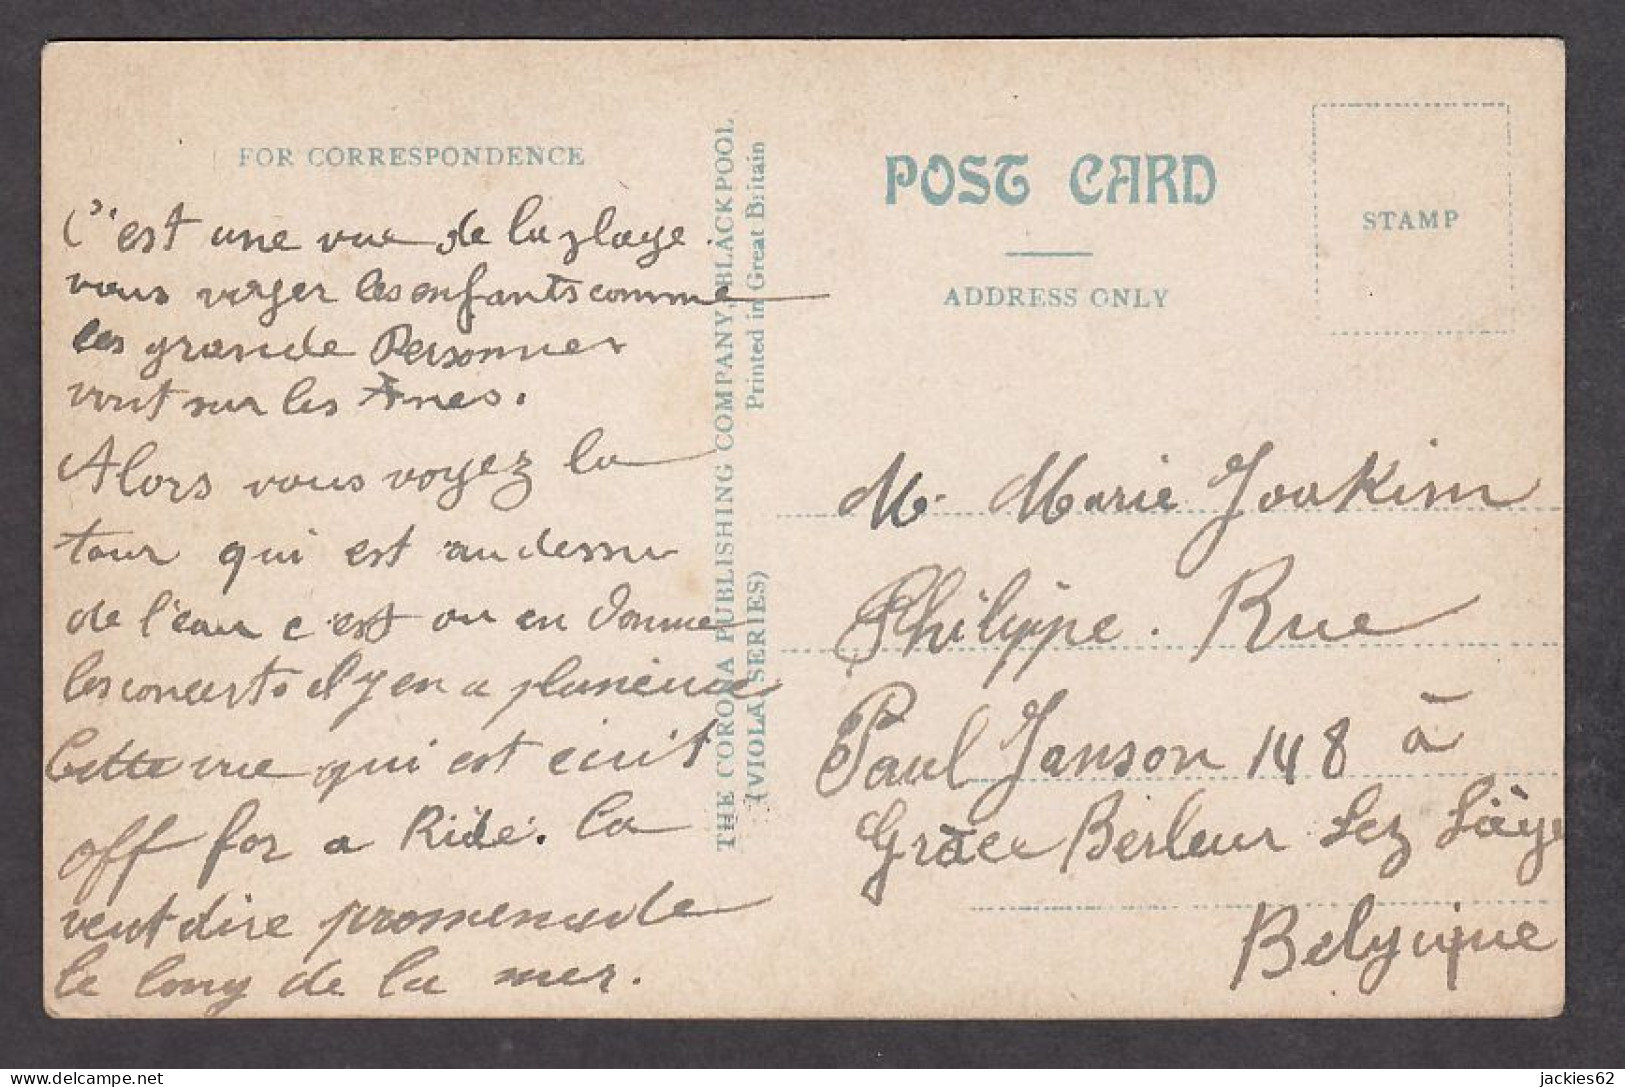 FOR CORRESPONDENCE
C'est une vue de la plage.
vous voyer les enfants comme
les grande Personnes
vont sur les Anes.
Alors vous voyez la
tour qui est au dessu
de l'eau c est ou en donne
les concerts il y en a plusieurs
Cette vue qui est écrit
off for a Ride. Ca
veut dire promenade
le long de la mer.
THE CORONA PUBLISHING COMPANY, BLACKPOOL
(VIOLA SERIES)
Printed in Great Britain
POST CARD
ADDRESS ONLY
STAMP
M. Marie Joakim
Philippe. Rue
Paul Janson 148 à
Grâce Berleur Lez Liège
Belgique
jackies62